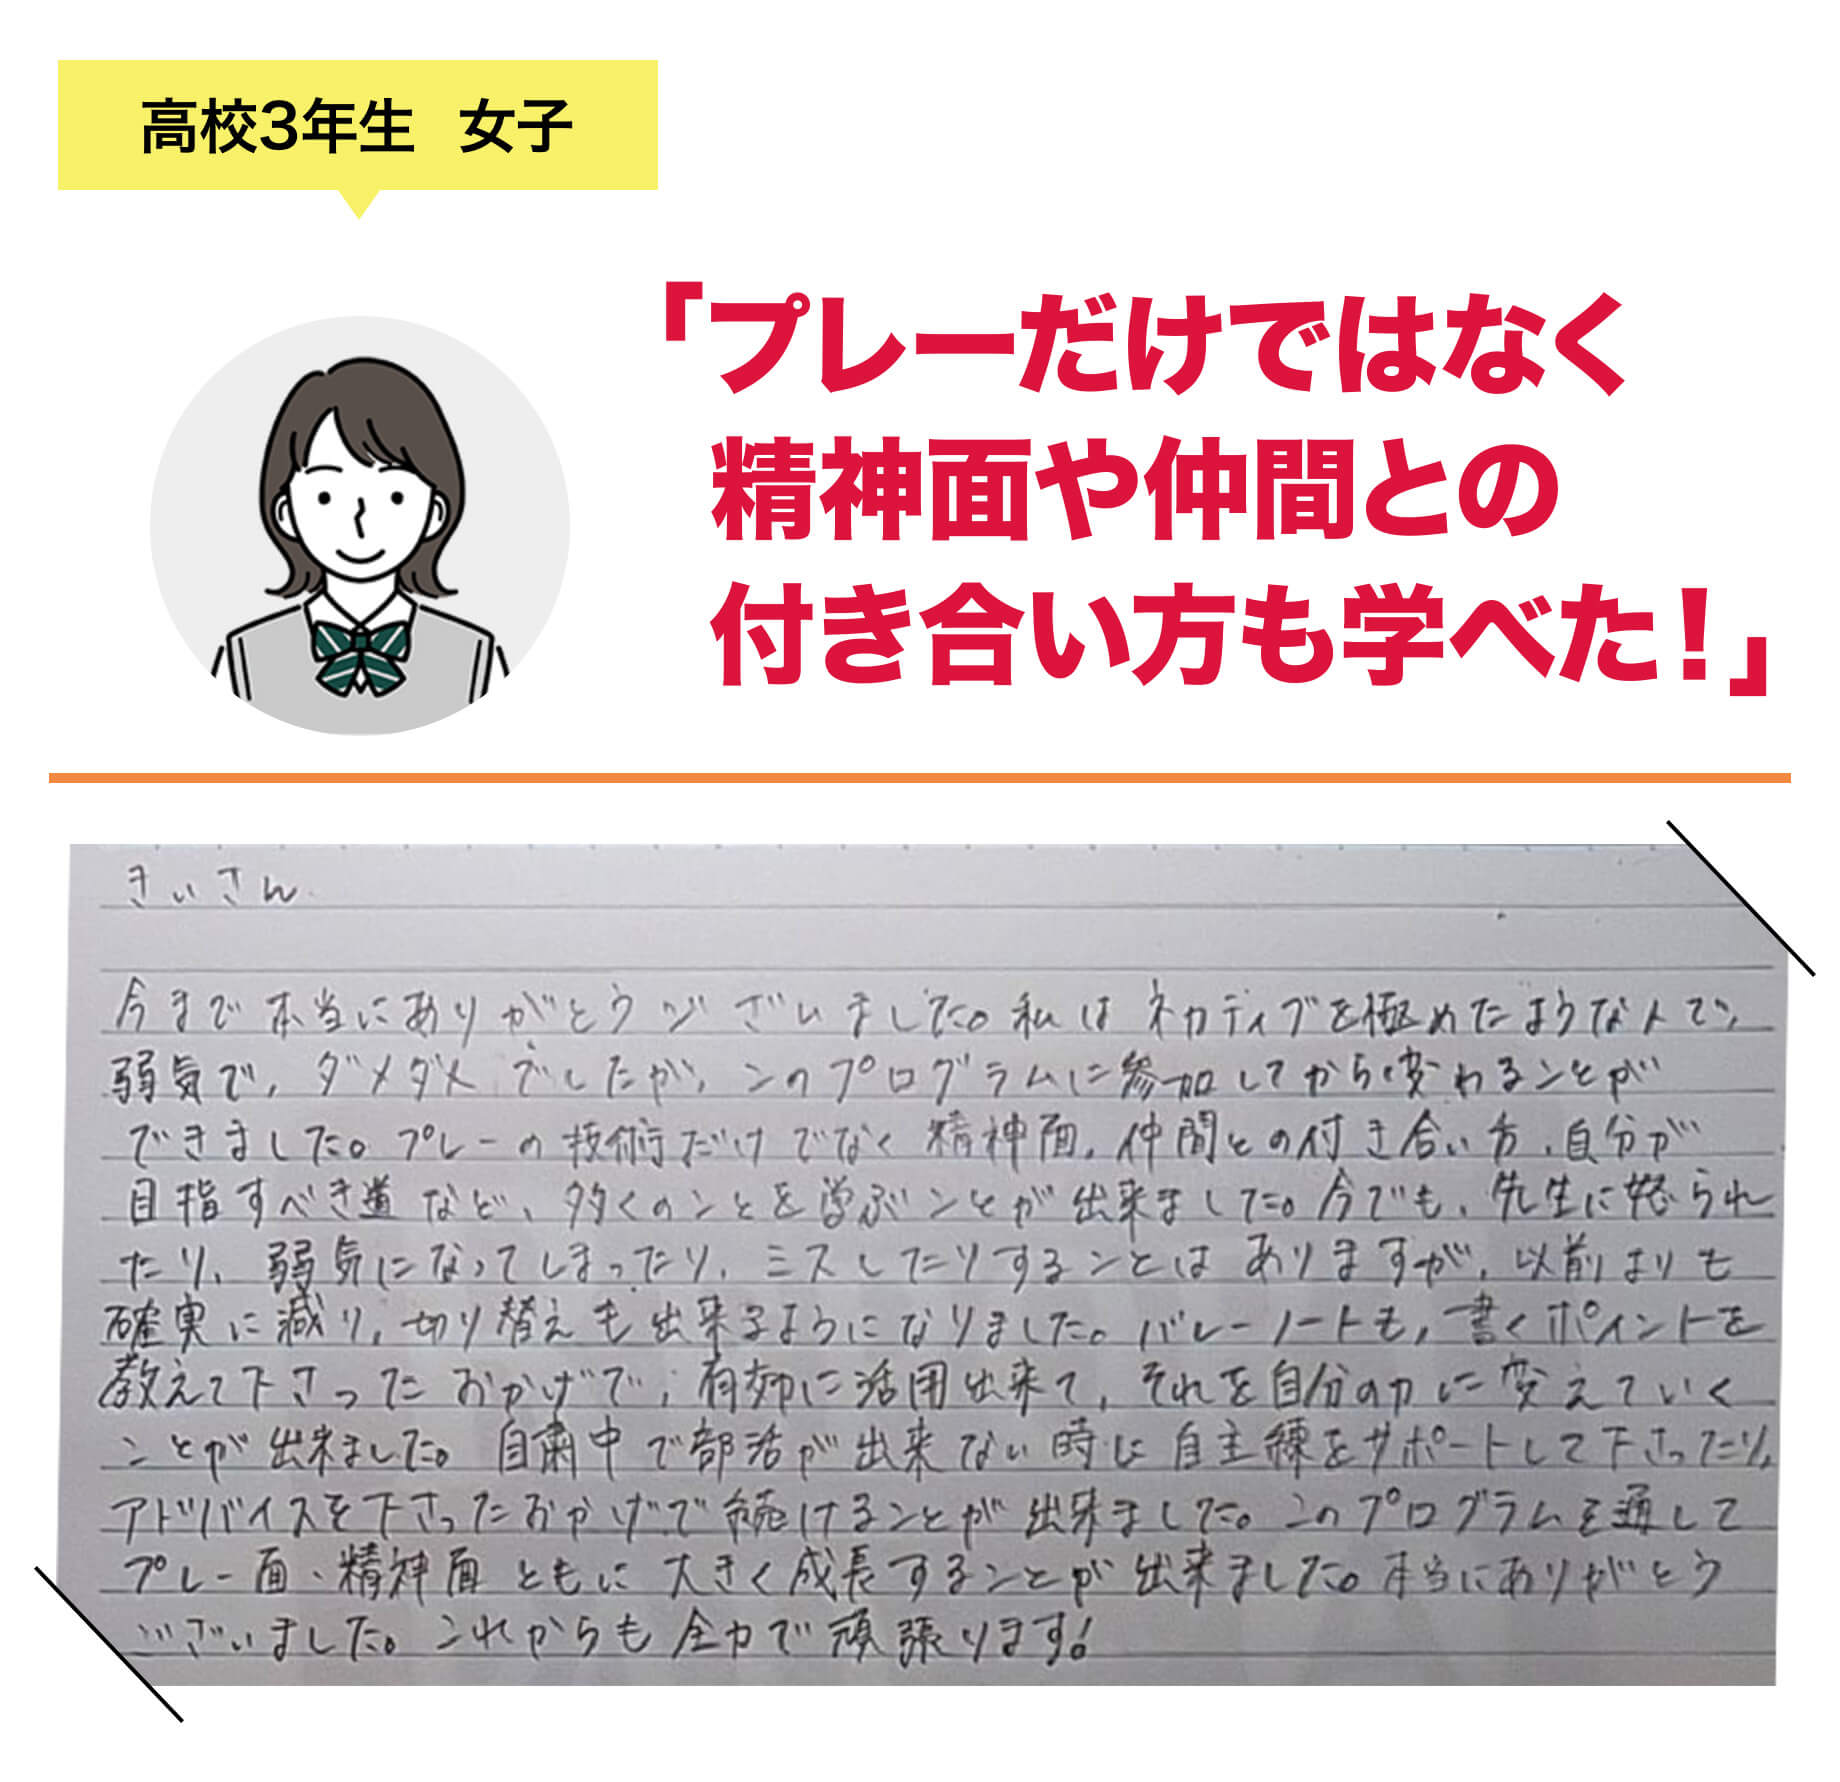 高校3年生 女子
「プレーだけではなく
精神面や仲間との
付き合い方も学べた！」
きぃさん
今まで本当にありがとうございました。私はネガティブを極めたような人で、
弱気で、ダメダメでしたが、このプログラムに参加してから変わることが
できました。プレーの技術だけでなく精神面、仲間との付き合い方、自分が
目指すべき道など、多くのことを学ぶことが出来ました。今でも、先生に怒られ
たり、弱気になってしまったり、ミスしたりすることはありますが、以前よりも
確実に減り、切り替えも出来るようになりました。バレーノートも、書くポイントを
教えて下さったおかげで、有効に活用出来て、それを自分の力に変えていく
ことが出来ました。自粛中で部活が出来ない時に自主練をサポートして下さったり、
アドバイスを下さったおかげで続けることが出来ました。このプログラムを通して
プレー面・精神面ともに大きく成長することが出来ました。本当にありがとう
ございました。これからも全力で頑張ります！